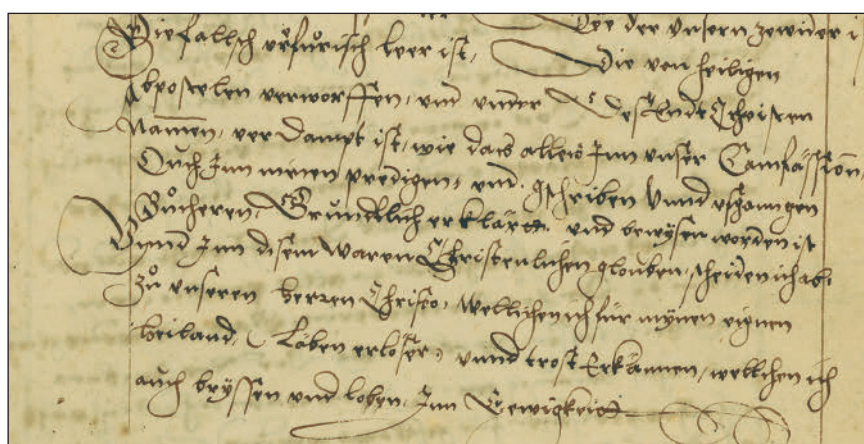 Die fallsch verfuͤrisch leer ist, Die der unsern zewider i
Die von heiligen
Apostelen verworffen, und under Christen
Nammen, verdampt ist, wie das alles Inn unser Confässion,
Ouch Inn minen predigen, und gschriben Unnd ußganngen
Buͤcheren, Gruͤndtlich erklärt und bewysen worden ist
Unnd Inn disem Waren Christenlichen glouben, scheiden ich ab,
zuͦ unseren herren Christo, wellichen ich für mynen eignen
heiland, Läben erlöser, unnd trost Erkännen, wellchen ich
auch bryssen und loben, Inn Eewigkeit